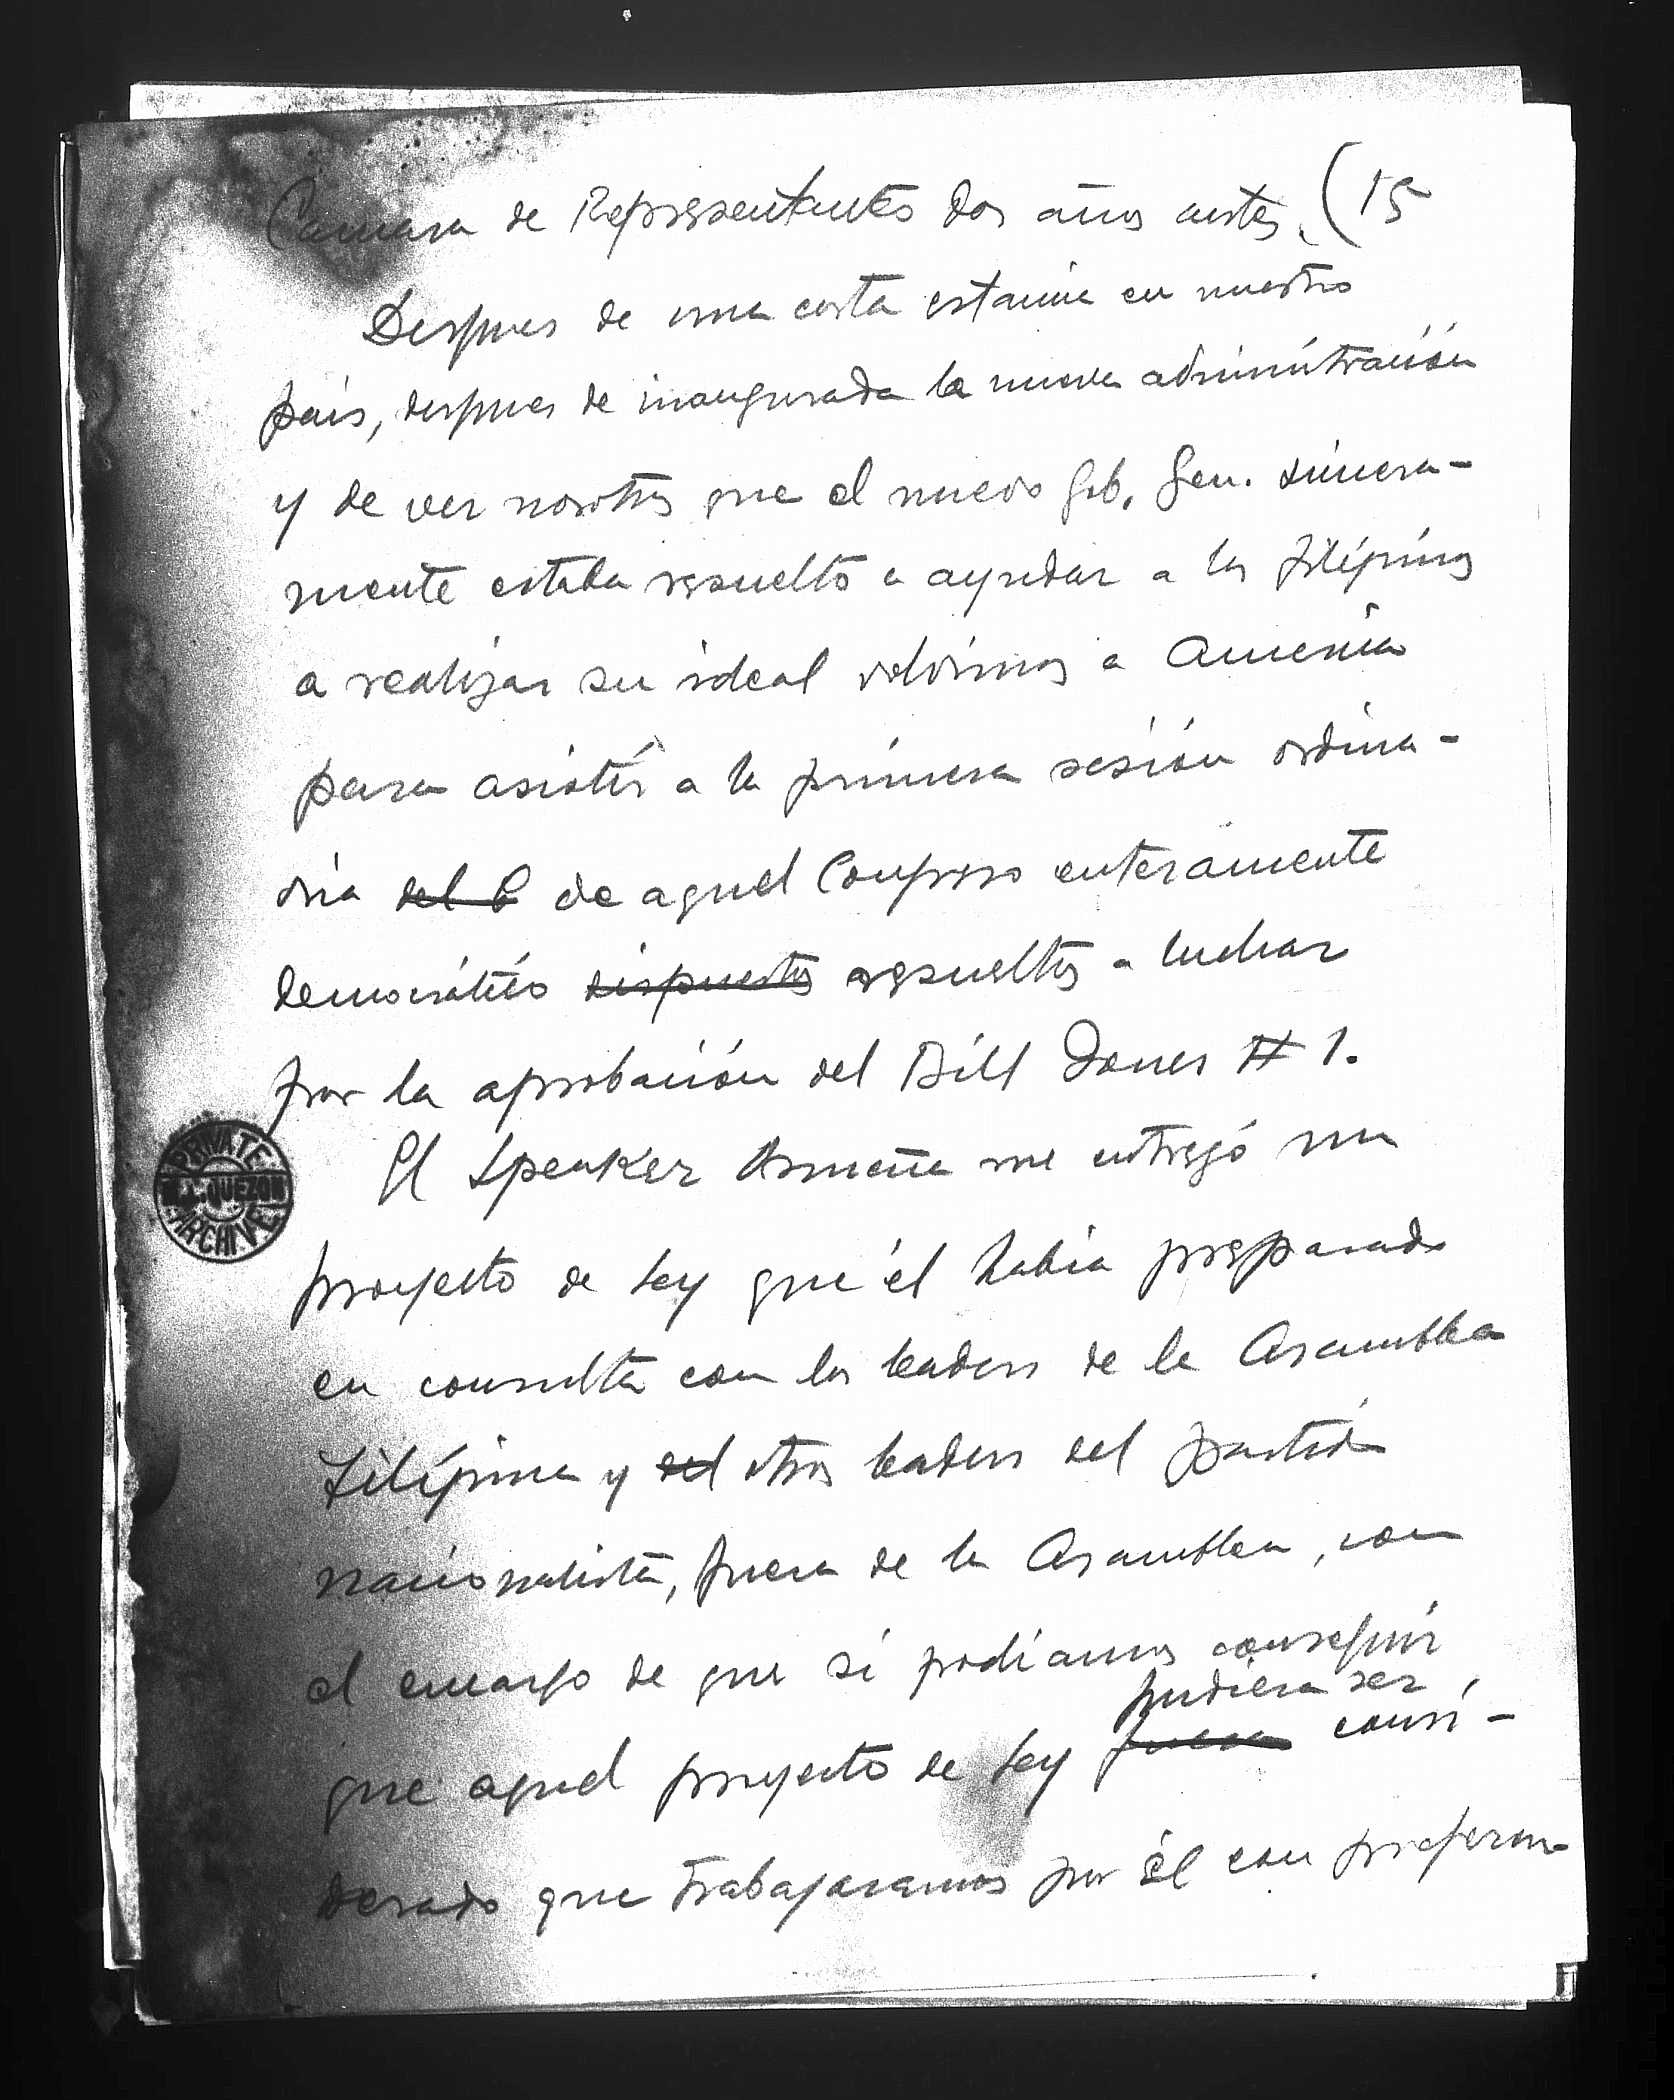 Camara de Representantes dos años antes. (15
Despues de una corta estancia en nuestro
país, despues de inaugurada la nueva administración
y de ver nosotros que el nuevo Gob. Gen. sincera-
mente estaba resuelto a ayudar a los filipinos
a realizar su ideal volvimos a America
para asistir a la primera sesión ordina-
ria del C de aquel Congreso enteramente
democrático dispuestos resueltos a luchar
por la aprobación del Bill Jones # 1.
El Speaker Osmeña me entregó un
proyecto de ley que él habia preparado
en consulta con los leaders de la Asamblea
Filipina y del otros leaders del partido
nacionalista, fuera de la Asamblea, con
el encargo de que si podiamos conseguir
pudiera ser,
que aquel proyecto de ley fuera consi-
derado que trabajaramos por él con preferen-
PRIVATE
M.L. QUEZON
ARCHIVE